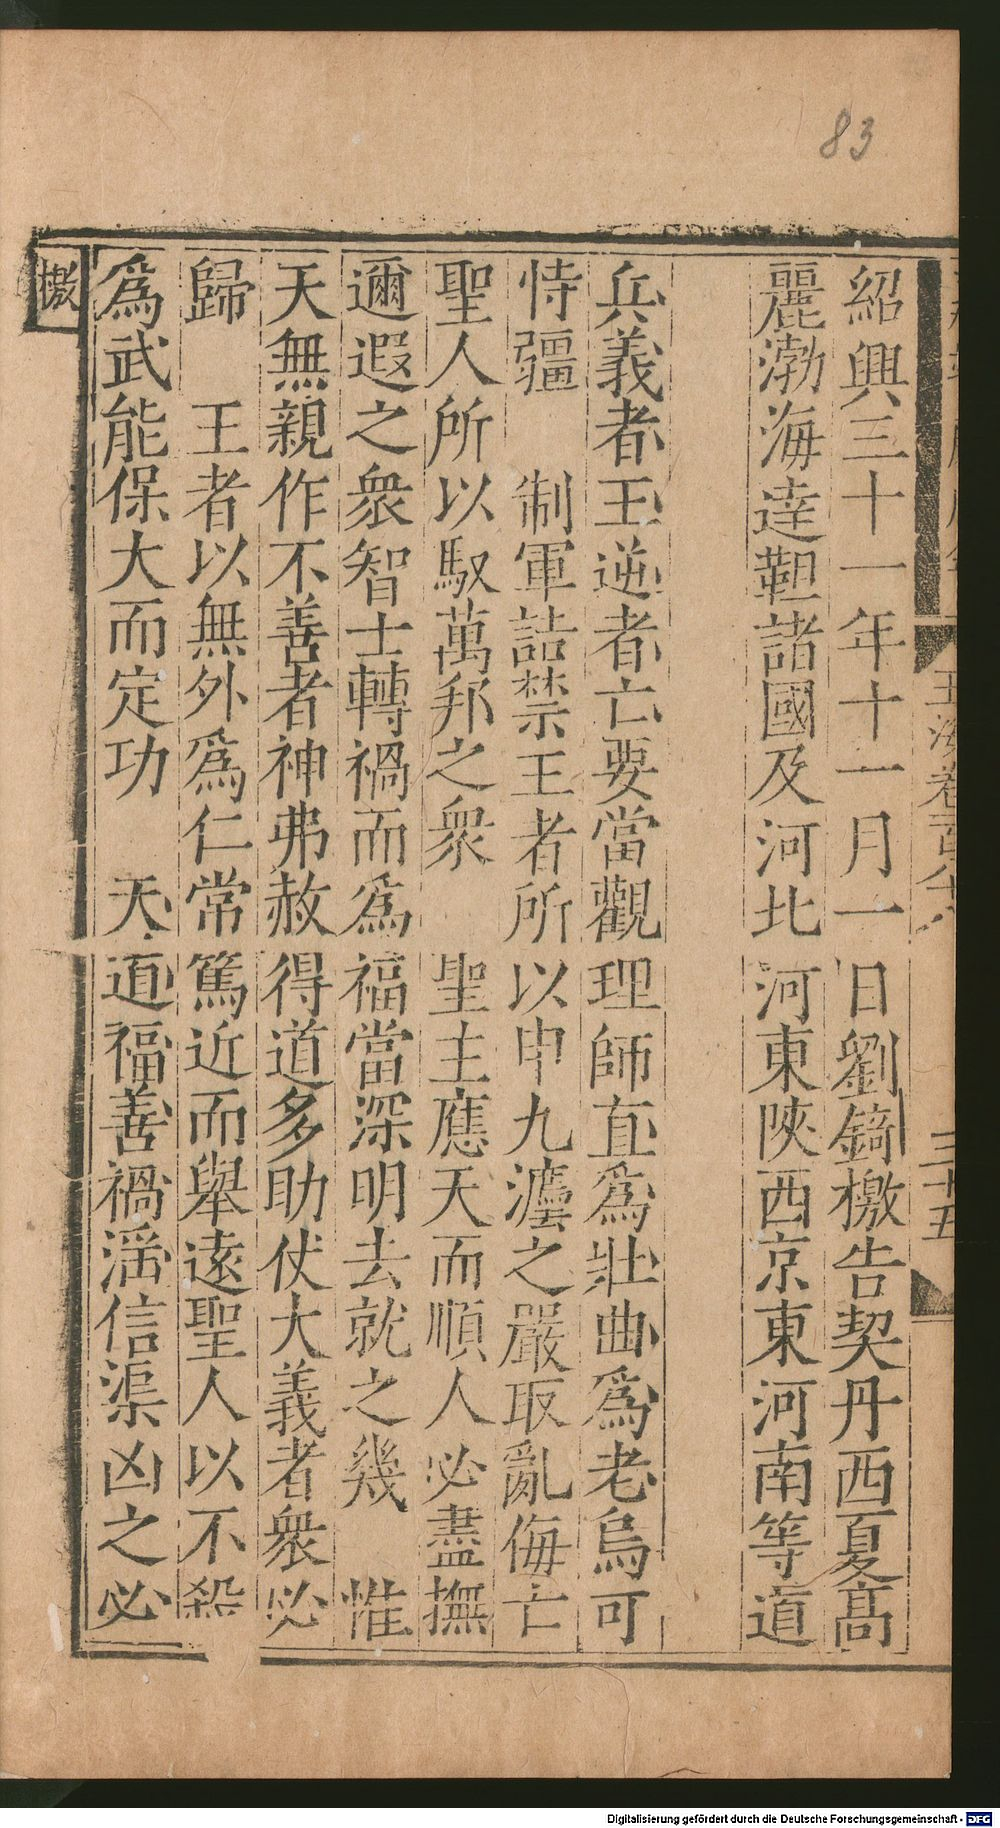 83
紹興三十一年十一月一日劉錡檄告契丹西夏高
麗渤海達靼諸國及河北河東陝西京東河南等道
兵義者王逆者亡要當觀理師直爲壯曲爲老烏可
恃疆 制軍詰禁王者所以申九灋之嚴取亂侮亡
聖人所以馭萬邦之衆 聖主應天而順人必盡撫
邇遐之衆智士轉禍而爲福當深明去就之幾 惟
天無親作不善者神弗赦得道多助仗大義者衆必
歸 王者以無外爲仁常篤近而舉遠聖人以不殺
爲武能保大而定功 天道福善禍淫信渠凶之必
檄
玉海卷百
三十五
Digitalisierung gefördert durch die Deutsche Forschungsgemeinschaft - DFG